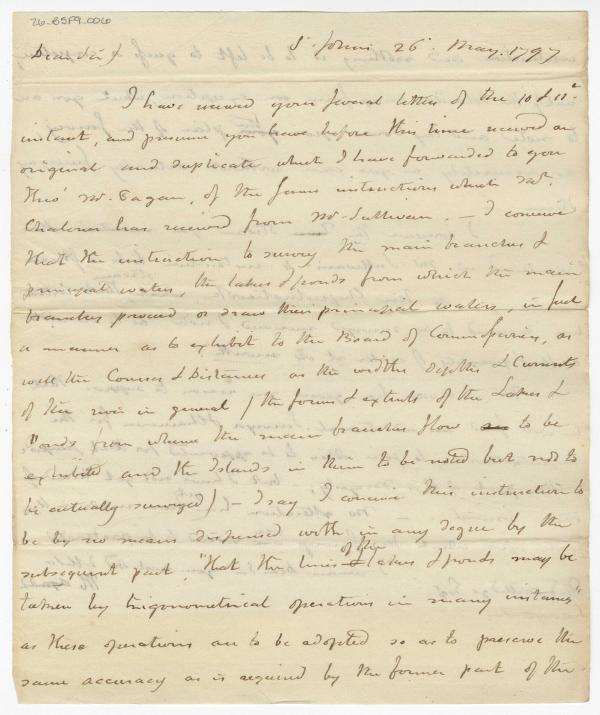 26-BSP9.006
St Johns 26th May. 1797
Dear Sir
I have received your several letters of the 10 & 11th
instant, and presume you have before this time received an
original and duplicate which I have forwarded to you
thro' Mr. Pagan, of the same instructions which Mr.
Chaloner has received from Mr. Sullivan. — I conceive
that the instruction to survey the main branches &
principal waters, the lakes & ponds from which the main
branches proceed or draw their principal waters, in such
a manner as to exhibit to the Board of Commissioners, as
well the Courses & Distances as the widths depths & Currents
of the river in general / the forms & extents of the Lakes &
Ponds from whence the main branches flow to be
exhibited and the Islands in them to be noted but not to
be actually surveyed / — I say I conceive this instruction to
be by no means dispensed with in any degree by the
subsequent part, "that the lines of the lakes & ponds may be
taken by trigonometrical operations in many instances"
as these operations are to be adopted so as to preserve the
same accuracy as is required by the former part of the